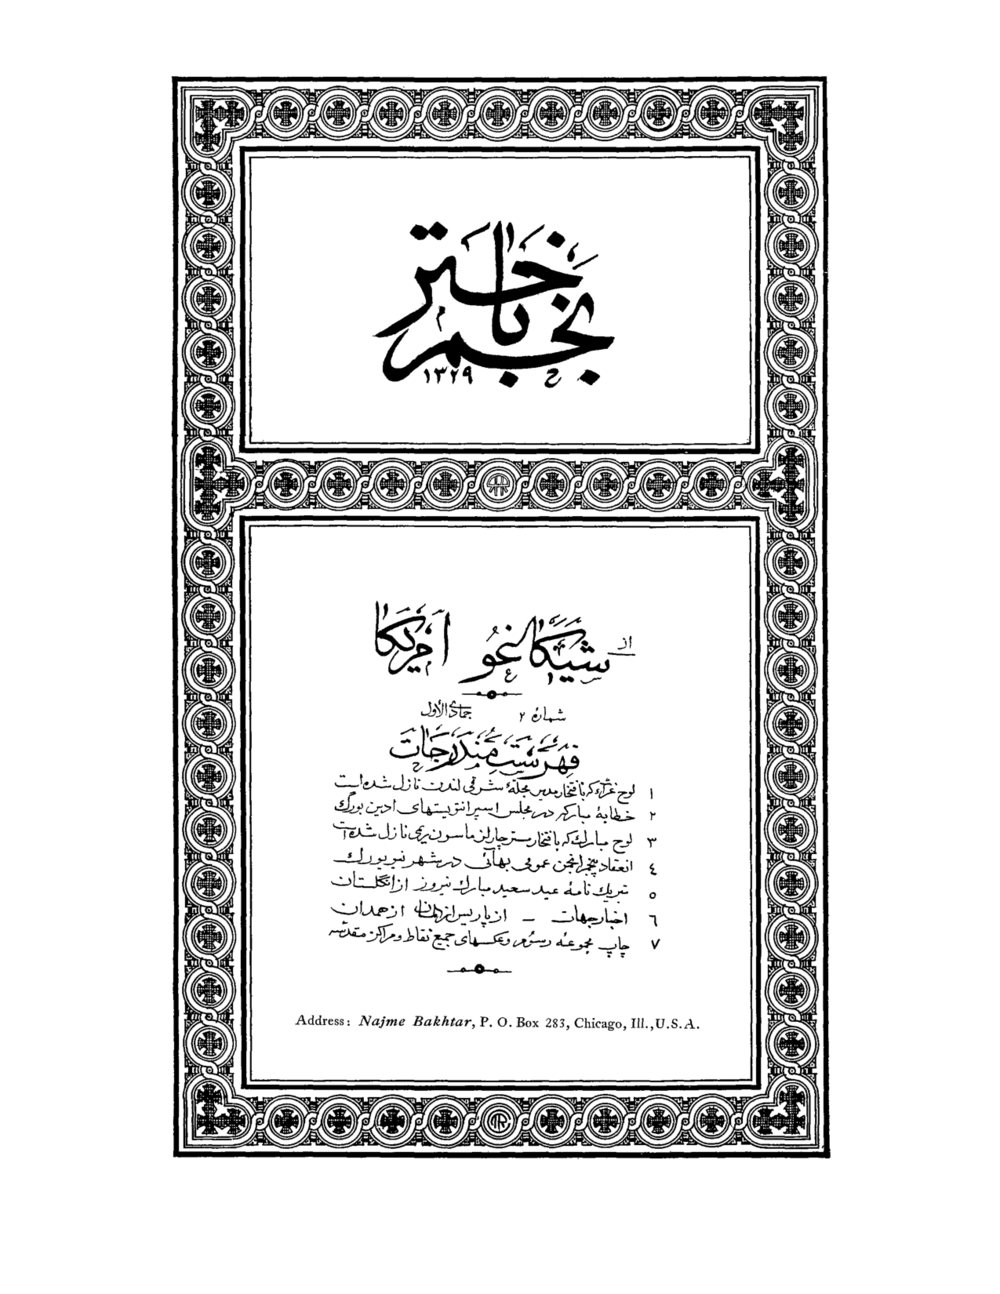 نجم باختر
۱۳۲۹
از شیکاغو امریکا
شماره ۲ جمادی الأول
فهرست مندرجات
۱ لوح غرّاء که بافتخار مدیر مجلهٔ شرقی لندن نازل شده است
۲ خطابهٔ مبارکه در مجلس اسپرانتویستهای ادین بورگ
۳ لوح مبارک که بافتخار مستر چارلز ماسون ریمی نازل شده است
٤ انعقاد پنجم انجمن عمومی بهائی در شهر نیویورک
٥ تبریک نامهٔ عید سعید مبارک نیروز از انگلستان
٦ اخبار جهات – از پاریس از از همدان
۷ چاپ مجموعه رسوم وعکسهای جمیع نقاط ومراکز مقدسه
Address: Najme Bakhtar, P. O. Box 283, Chicago, Ill., U.S.A.